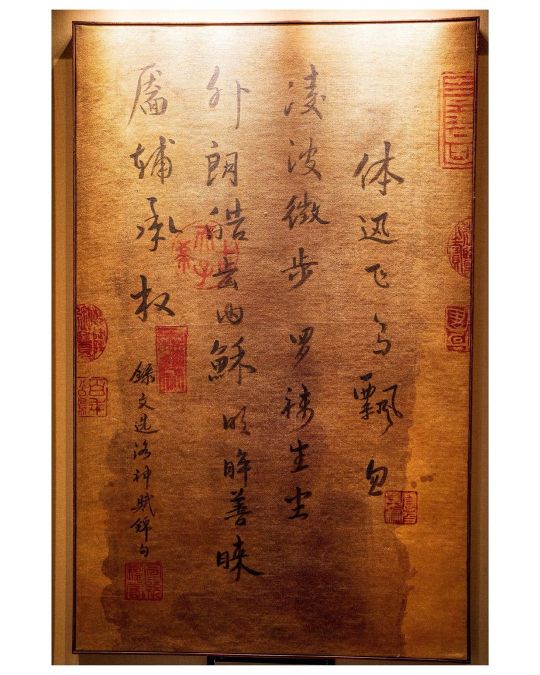 体迅飞鸟飄忽
凌波微步罗袜生尘
外朗皓齿内鲜明眸善睐
靥辅承权
錄文选洛神賦錦句